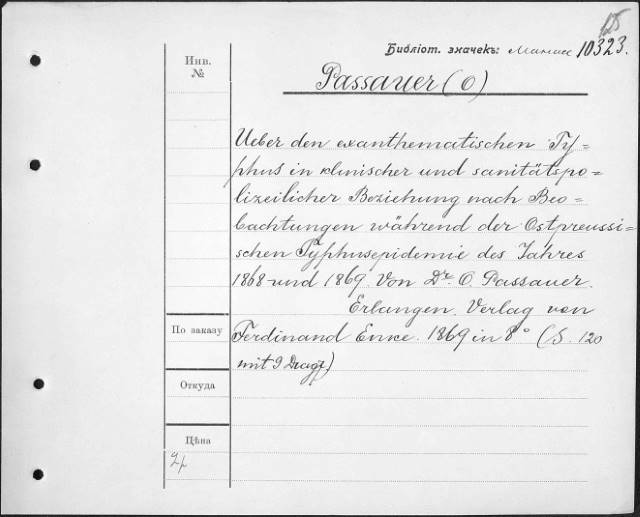 15
Библіот. значекъ: 10323.
Инв.
№
Passauer (O)
Ueber den exanthematischen Ty=
phus in klinischer und sanitätspo=
lizeilicher Beziehung nach Beo=
bachtungen während der Ostpreussi=
schen Typhusepidemie des Jahres
1868 und 1869. Von Dr. O. Passauer.
Erlangen. Verlag von
По заказу
Ferdinand Enke. 1869 in 8° (S. 120
mit 9
Откуда
Цѣна